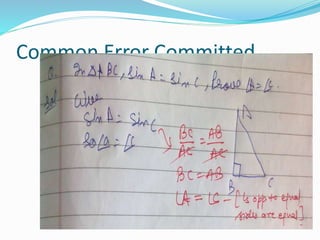 Common Error Committed
Q. In △ABC, Sin A = Sin C, Prove ∠A = ∠C.
Sol Given
Sin A = Sin C
So ∠A = ∠C
BC/AC = AB/AC
BC = AB
∠A = ∠C – [∠s opp to equal
sides are equal]
A
B
C